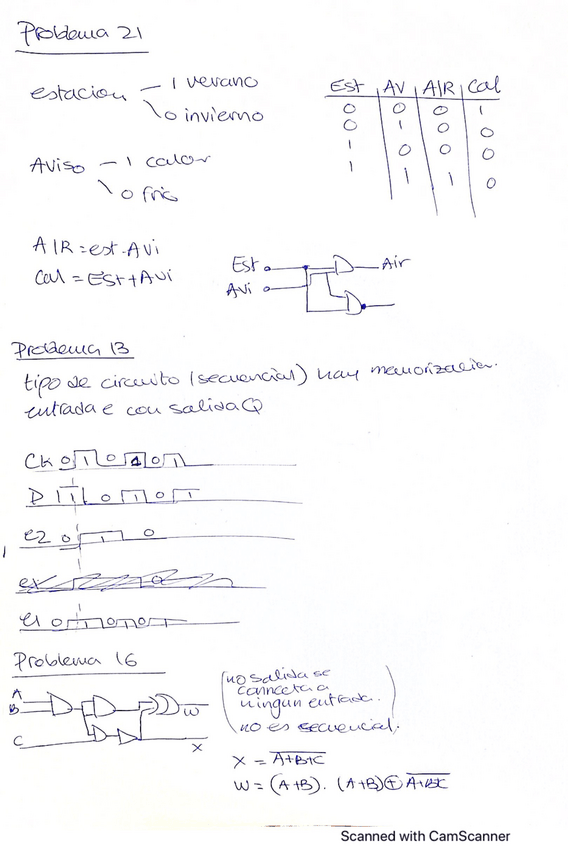 Problema 21
estacion 1 verano
0 invierno
Aviso 1 calor
0 frio
Est AV AIR Cal
0 0 0 1
0 1 0 0
1 0 0 0
1 1 1 0
AIR = est.Avi
Cal = Est+Avi
Est Air
Avi
Problema 13
tipo de circuito (secuencial) hay memorizacion.
entrada e con salida Q
Ck 0 1 0 1 0 1
D 1 0 1 0 1
e2 0 1 0
e1 0 1 0 1 0
Problema 16
A
B
C
W
X
(no salida se
connecta a
ningun entrada.
no es secuencial.)
X = \overline{A+B+C}
W = (A+B). (A+B)⊕\overline{A+B+C}
Scanned with CamScanner